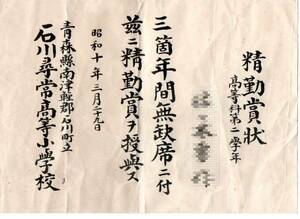 精勤賞狀
高等科第二學年
三箇年間無缺席ニ付
玆ニ精勤賞ヲ授與ス
昭和十年三月二十九日
青森縣南津輕郡石川町立
石川尋常高等小學校